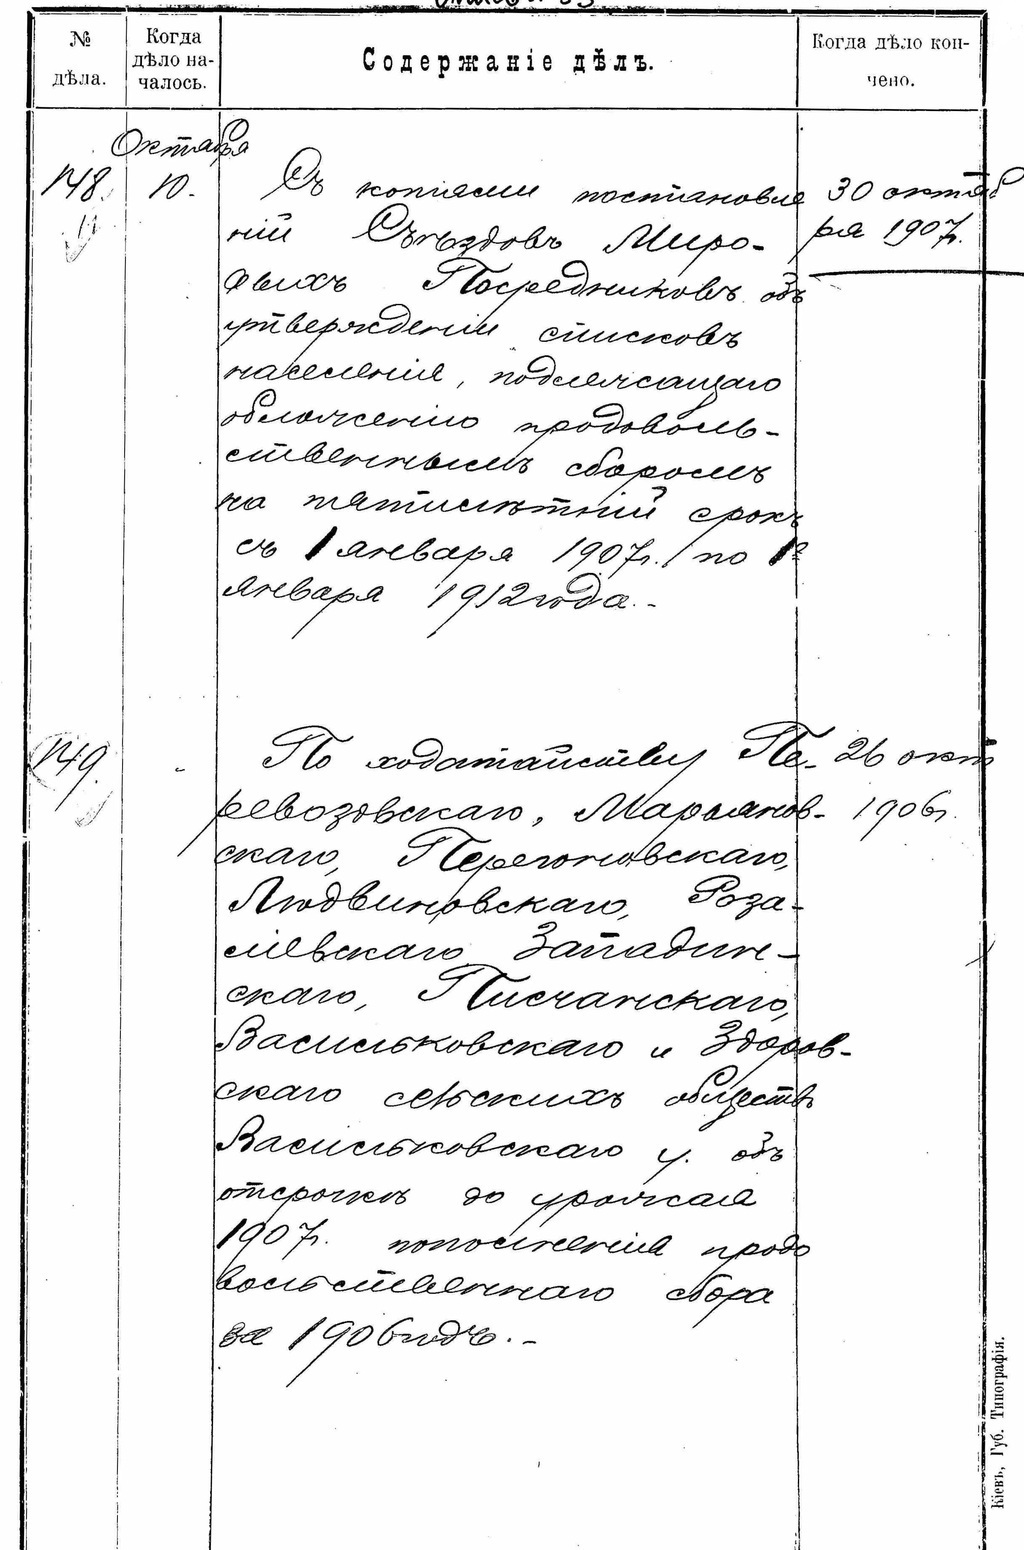 № дѣла.
Когда дѣло на-
чалось.
Содержаніе дѣлъ.
Когда дѣло кон-
чено.
Октября
148. 10. Съ копіями постановле 30 октяб
11
ній Съѣздовъ Миро- ря 1907г.
выхъ Посредниковъ объ
утвержденіи списковъ
населенія, подлежащаго
обложенію продоволь-
ственнымъ сборомъ
на пятилѣтній срокъ
съ 1 января 1907г. по 1е
января 1912 года.-
149. - По ходатайству Пе- 26 окт
ревозовскаго, Марьянов- 1906г.
скаго, Перегоновскаго,
Людвиновскаго, Роза-
ліевскаго Западин-
скаго, Писчанскаго,
Васильковскаго и Здоров-
скаго сельскихъ обществъ
Васильковскаго у. объ
отсрочкѣ до урожая
1907г. пополненія продо
вольственнаго сбора
за 1906 годъ.-
Кіевъ, Губ. Типографія.